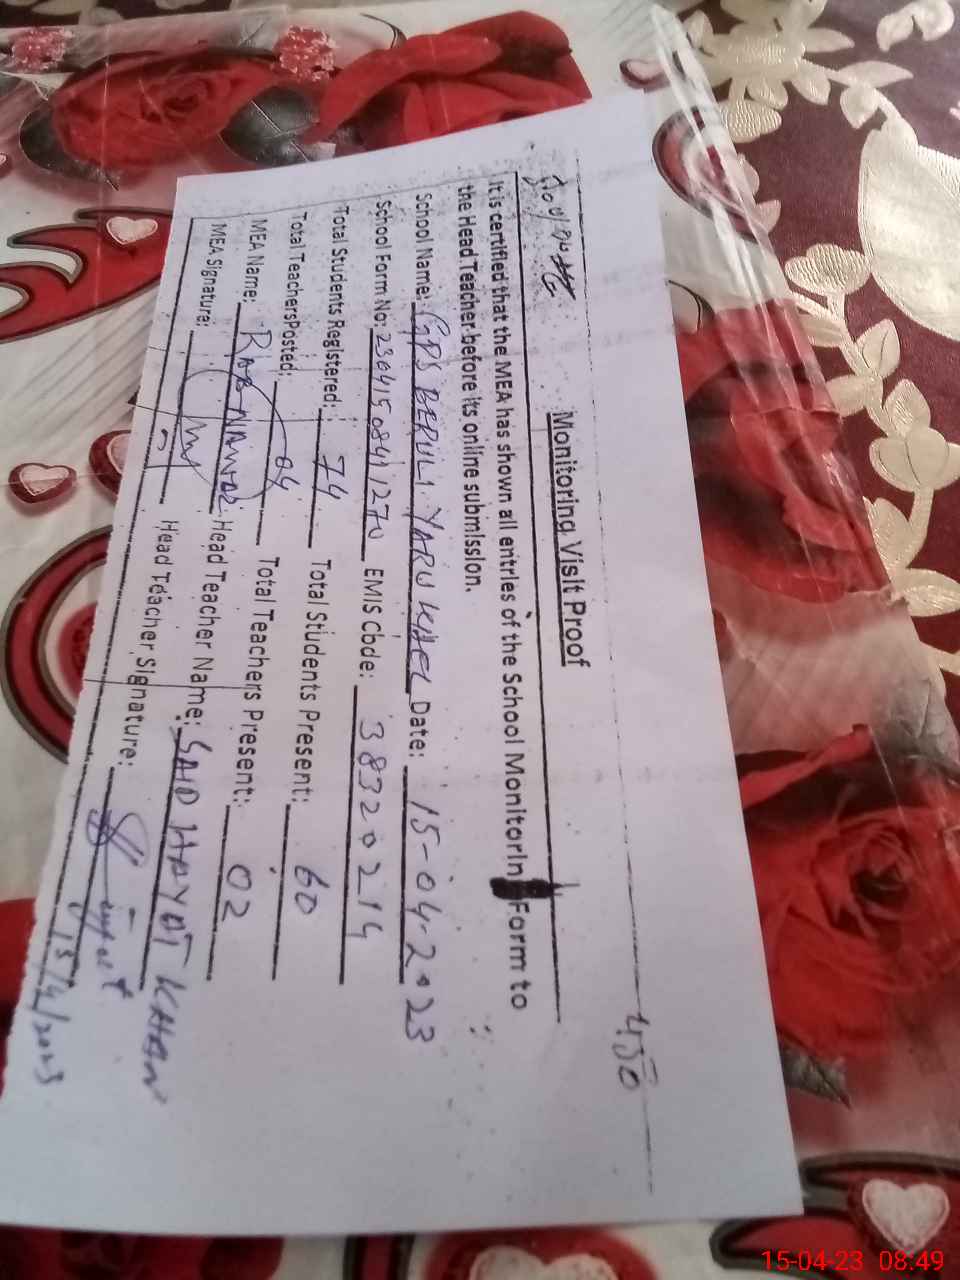 450
Monitoring Visit Proof
It is certified that the MEA has shown all entries of the School Monitorin Form to
the Head Teacher before its online submission.
School Name: GPS BERULI YARU KHEL Date: 15-04-2023
School Form No: 23041508411270 EMIS Cbode: 38320214
Total Students Registered: 74 Total Students Present: 60
Total TeachersPosted: 04 Total Teachers Present: 02
MEA Name: RAB NAWAZ Head Teacher Name: SAID HAYAT KHAN
MEA Signature: Head Teacher Signature:
15/4/2023
15-04-23 08:49